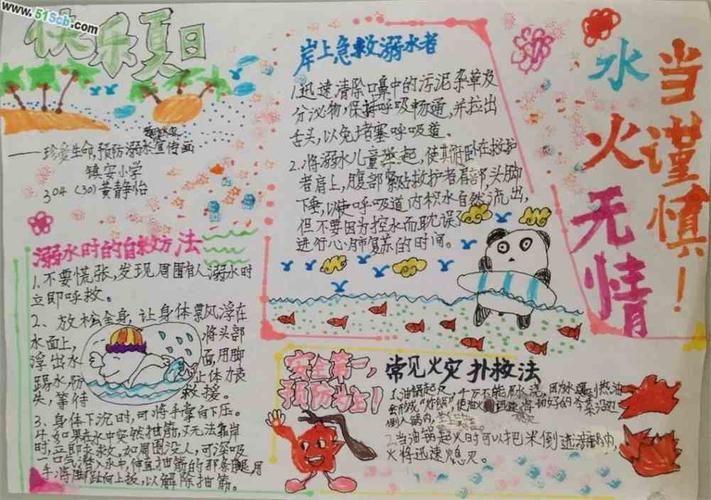 www.51scb.com
快乐夏日
——珍爱生命,预防溺水宣传画
镇安小学
304 (30) 黄静怡
溺水时的自救方法
1、不要慌张,发现周围有人溺水时
立即呼救。
2、放松全身,让身体飘浮在
水面上,将头部
浮出水面,用脚
踢水,防止体力丧
失,等待救援。
3、身体下沉时,可将手掌向下压。
4、如果在水中突然抽筋,又无法靠岸
时,立即求救,如周围没人,可深吸
一口气潜入水中,伸直抽筋的那条腿用
手将脚趾向上扳,以解除抽筋。
岸上急救溺水者
1.迅速清除口鼻中的污泥杂草及
分泌物,保持呼吸畅通,并拉出
舌头,以免堵塞呼吸道。
2.将溺水儿童举起,使其俯卧在救护
者肩上,腹部紧贴救护者肩部头脚
下垂,以使呼吸道内积水自然流出,
但不要因为控水而耽误了
进行心肺复苏的时间。
水火无情
当谨慎!
安全第一,
预防为主!
常见火灾扑救法
1.油锅起火,千万不能用水浇,因为水遇到热油
会形成"炸锅",使油火到处飞溅,
倒入锅内,
2.当油锅起火时可以把米倒进油锅内,
火将迅速熄灭。